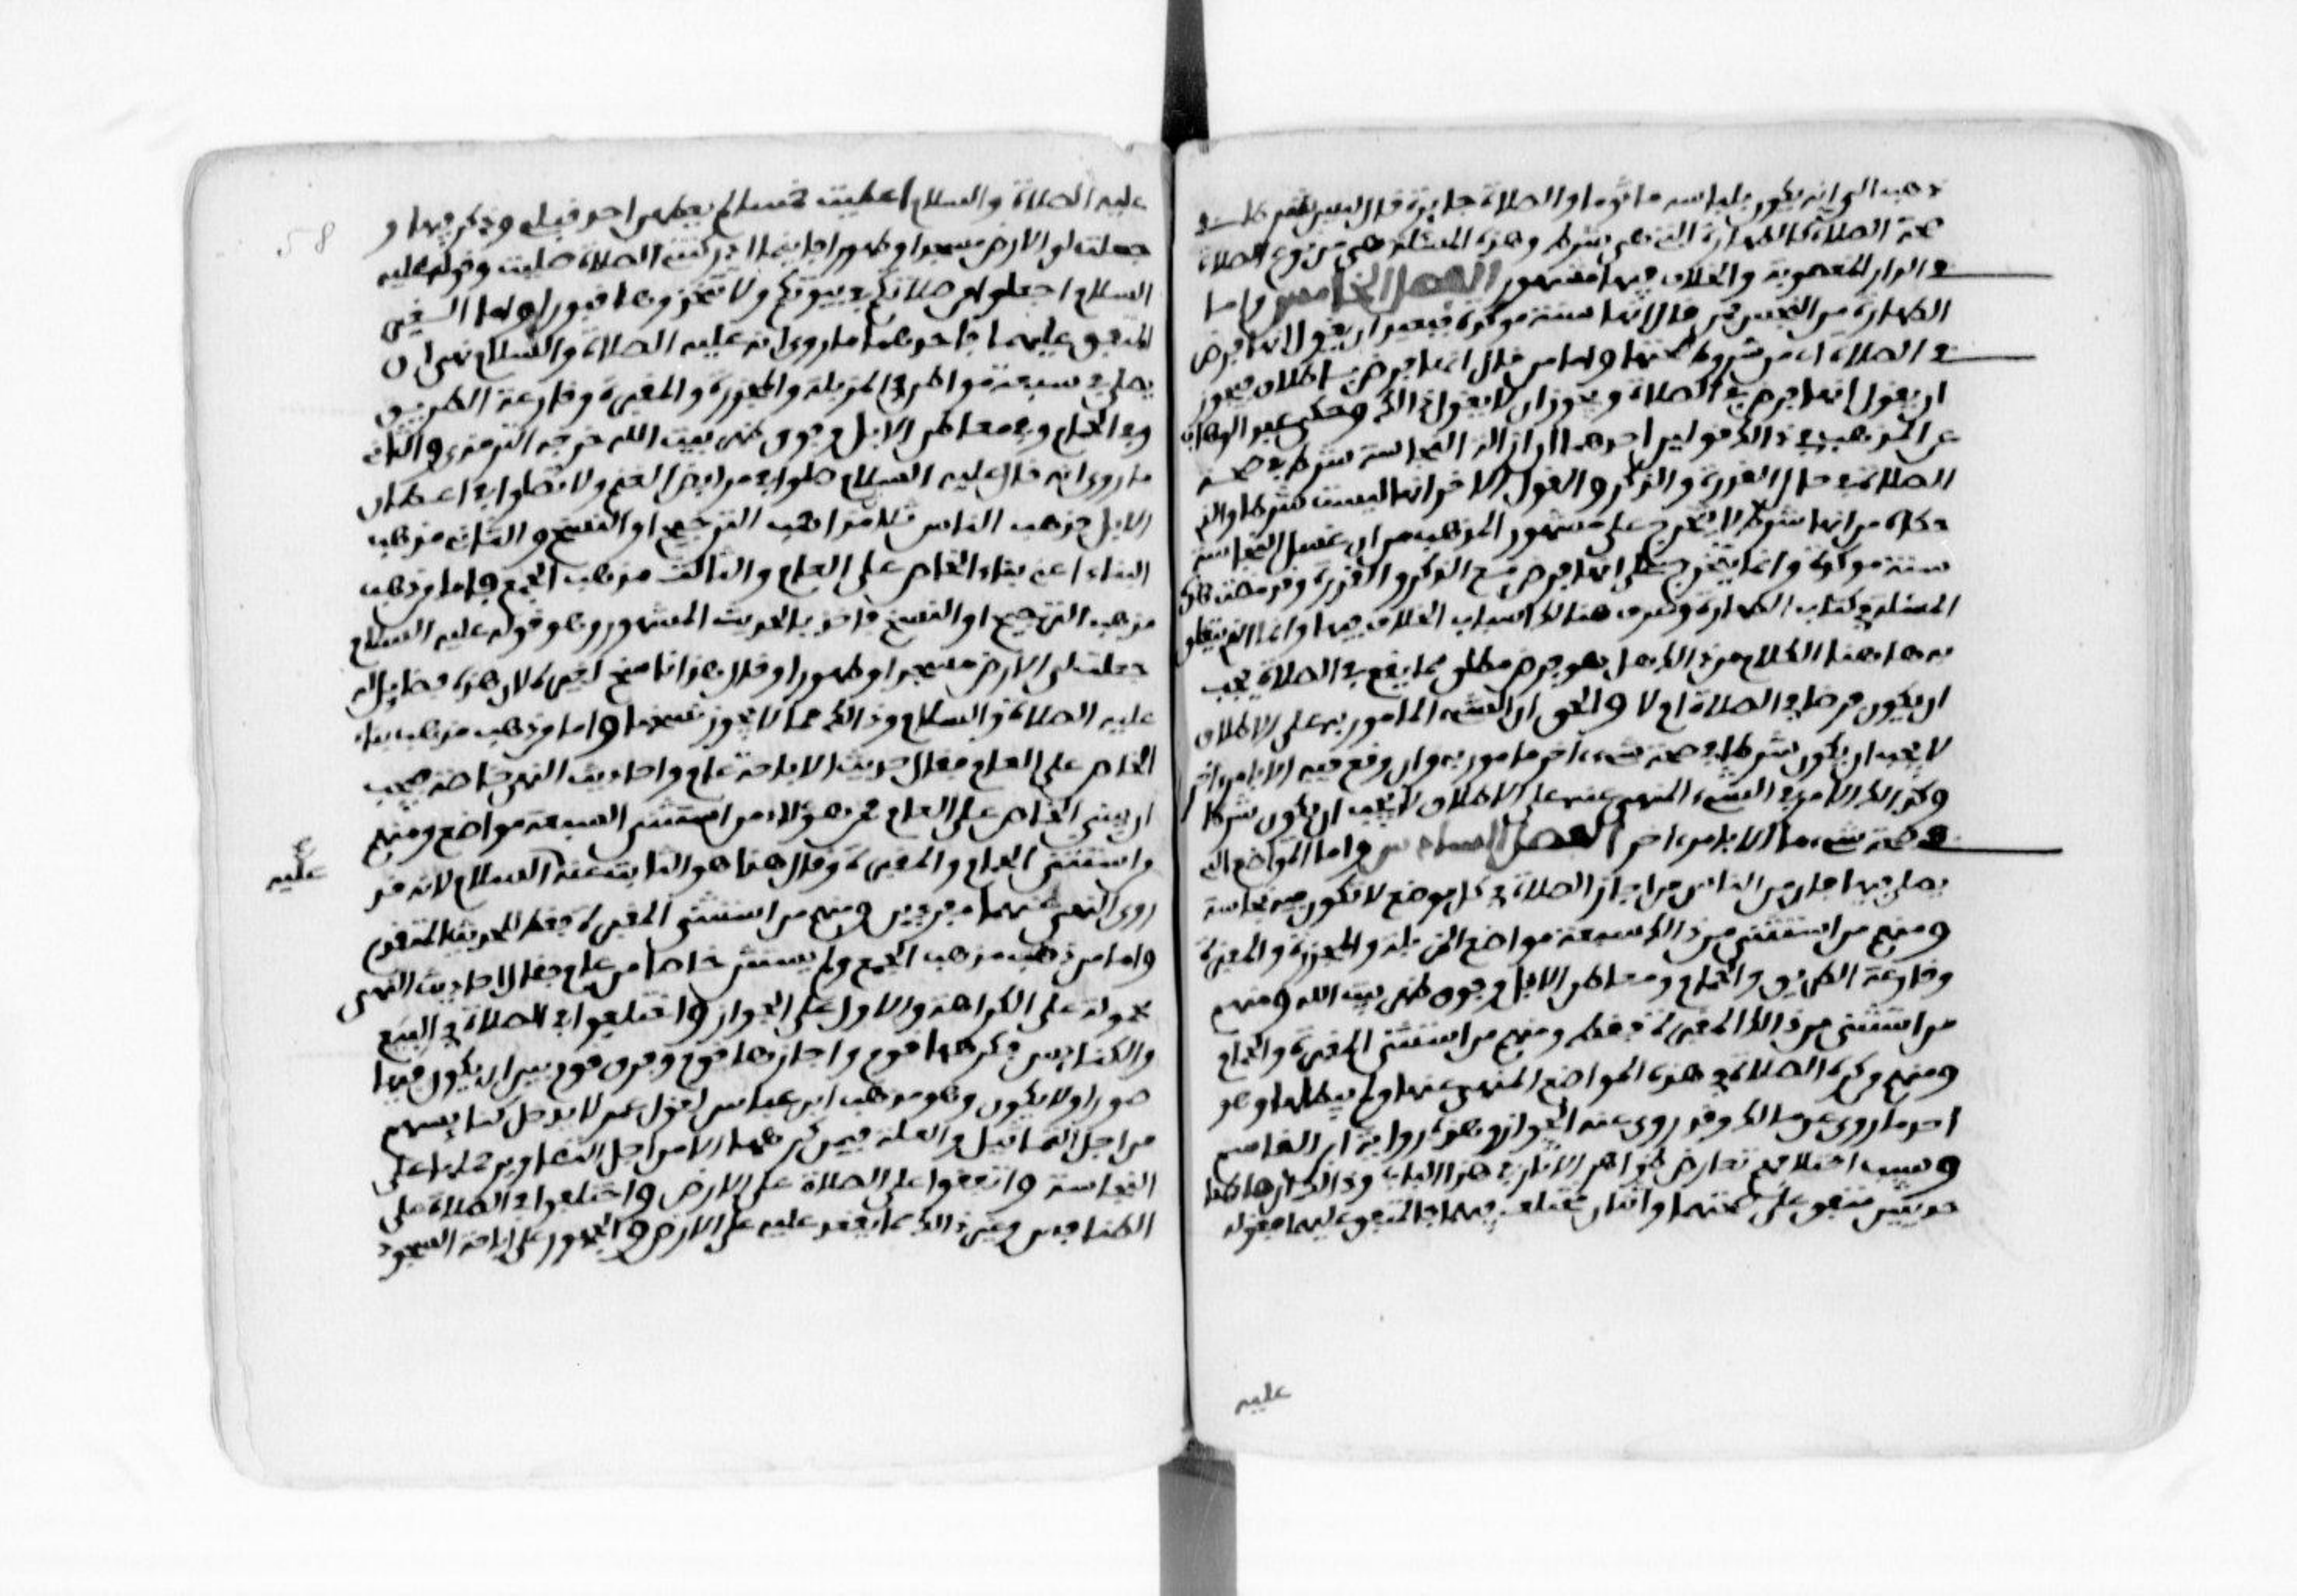 ذهب الى انه يكون بلباسه ماثوما والصلاة جايزة قال ليس بشرط في
صحة الصلاة كالطهارة التي هي شرط وهذه المسئلة هي من نوع الصلاة
في الدار المغصوبة والخلاف فيها مشهور الفصل الخامس واما
الطهارة من النجس فمن قال انها سنة موكدة فيبعد ان يقول انها فرض
في الصلاة اي من شروط صحتها واما من قال انها فرض باطلاق فيجوز
ان يقول انها فرض في الصلاة ويجوز ان لا يقول ذالك وحكى عبد الوهاب
عن المذهب في ذالك قولين احدهما ان ازالة النجاسة شرط في صحة
الصلاة في حال القدرة والذكر والقول الاخر انها ليست شرطا والذي
حكاه من انها شرط لا يتخرج على مشهور المذهب من ان غسل النجاسة
سنة موكدة وانما يتخرج على انها فرض مع الذكر والقدرة وقد مضت هذه
المسئلة في كتاب الطهارة وعرف هنالك اسباب الخلاف فيها وانما الذي يتعلق
به هاهنا الكلام من ذالك هل هو فرض مطلق مما يقع في الصلاة يجب
ان يكون فرضا في الصلاة ام لا والحق ان الشيء المامور به على الاطلاق
لا يجب ان يكون شرطا في صحة شيء اخر مامور به وان وقع فيه الا بامر اخر
وكذالك الامر في الشيء المنهي عنه على الاطلاق لا يجب ان يكون شرطا
في صحة شيء ما الا بامر اخر الفصل السادس واما المواضع التي
يصلى فيها فان من الناس من اجاز الصلاة في كل موضع لا تكون فيه نجاسة
ومنهم من استثنى من ذالك سبعة مواضع المزبلة والمجزرة والمقبرة
وقارعة الطريق والحمام ومعاطن الابل وفوق ظهر بيت الله ومنهم
من استثنى من ذالك المقبرة فقط ومنهم من استثنى المقبرة والحمام
ومنهم من كره الصلاة في هذه المواضع المنهي عنها ولم يبطلها وهو
احد ما روي عن مالك وقد روي عنه الجواز وهذه رواية ابن القاسم
وسبب اختلافهم تعارض ظواهر الاثار في هذا الباب وذالك ان هاهنا
حديثين متفق على صحتهما واثنان مختلف فيهما فالمتفق عليهما فقوله
عليه
58
عليه الصلاة والسلام اعطيت خمسا لم يعطهن احد قبلي وذكر فيها و
جعلت لي الارض مسجدا وطهورا فاينما ادركتني الصلاة صليت وقوله عليه
السلام اجعلوا من صلاتكم في بيوتكم ولا تتخذوها قبورا واما الغير
المتفق عليهما فاحدهما ما روي انه عليه الصلاة والسلام نهى ان
يصلى في سبعة مواطن في المزبلة والمجزرة والمقبرة وقارعة الطريق
وفي الحمام وفي معاطن الابل وفوق ظهر بيت الله خرجه الترمذي والثاني
ما روي انه قال عليه السلام صلوا في مرابض الغنم ولا تصلوا في اعطان
الابل فذهب الناس ثلاث مذاهب الترجيح او النسخ والثاني مذهب
البناء اعني بناء الخاص على العام والثالث مذهب الجمع فاما من ذهب
مذهب الترجيح او النسخ فاخذ بالحديث المشهور وهو قوله عليه السلام
جعلت لي الارض مسجدا وطهورا وقال هذا ناسخ لغيره لان هذه فضايل له
عليه الصلاة والسلام وذالك مما لا يجوز نسخها واما من ذهب مذهب بناء
الخاص على العام فقال حديث الاباحة عام واحاديث النهي خاصة فيجب
ان يبنى الخاص على العام فمن هؤلاء من استثنى السبعة مواضع ومنهم
واستثنى الحمام والمقبرة وقال هذا هو الثابت عنه السلام لانه قد
ع عليه
روي النهي عنهما مفردين ومنهم من استثنى المقبرة فقط للحديث المتقدم
واما من ذهب مذهب الجمع ولم يستثن خاصا من عام فقال احاديث النهي
محمولة على الكراهة والاول على الجواز واختلفوا في الصلاة في البيع
والكنايس فكرهها قوم واجازها قوم وفرق قوم بين ان يكون فيها
صور او لا يكون وهو مذهب ابن عباس لقول عمر لا ندخل كنايسهم
من اجل التماثيل والعلة فيمن كرهها لا من اجل التصاوير حملها على
النجاسة واتفقوا على الصلاة على الارض واختلفوا في الصلاة على
الطنافس وغير ذالك مما يقعد عليه على الارض والجمهور على اباحة السجود